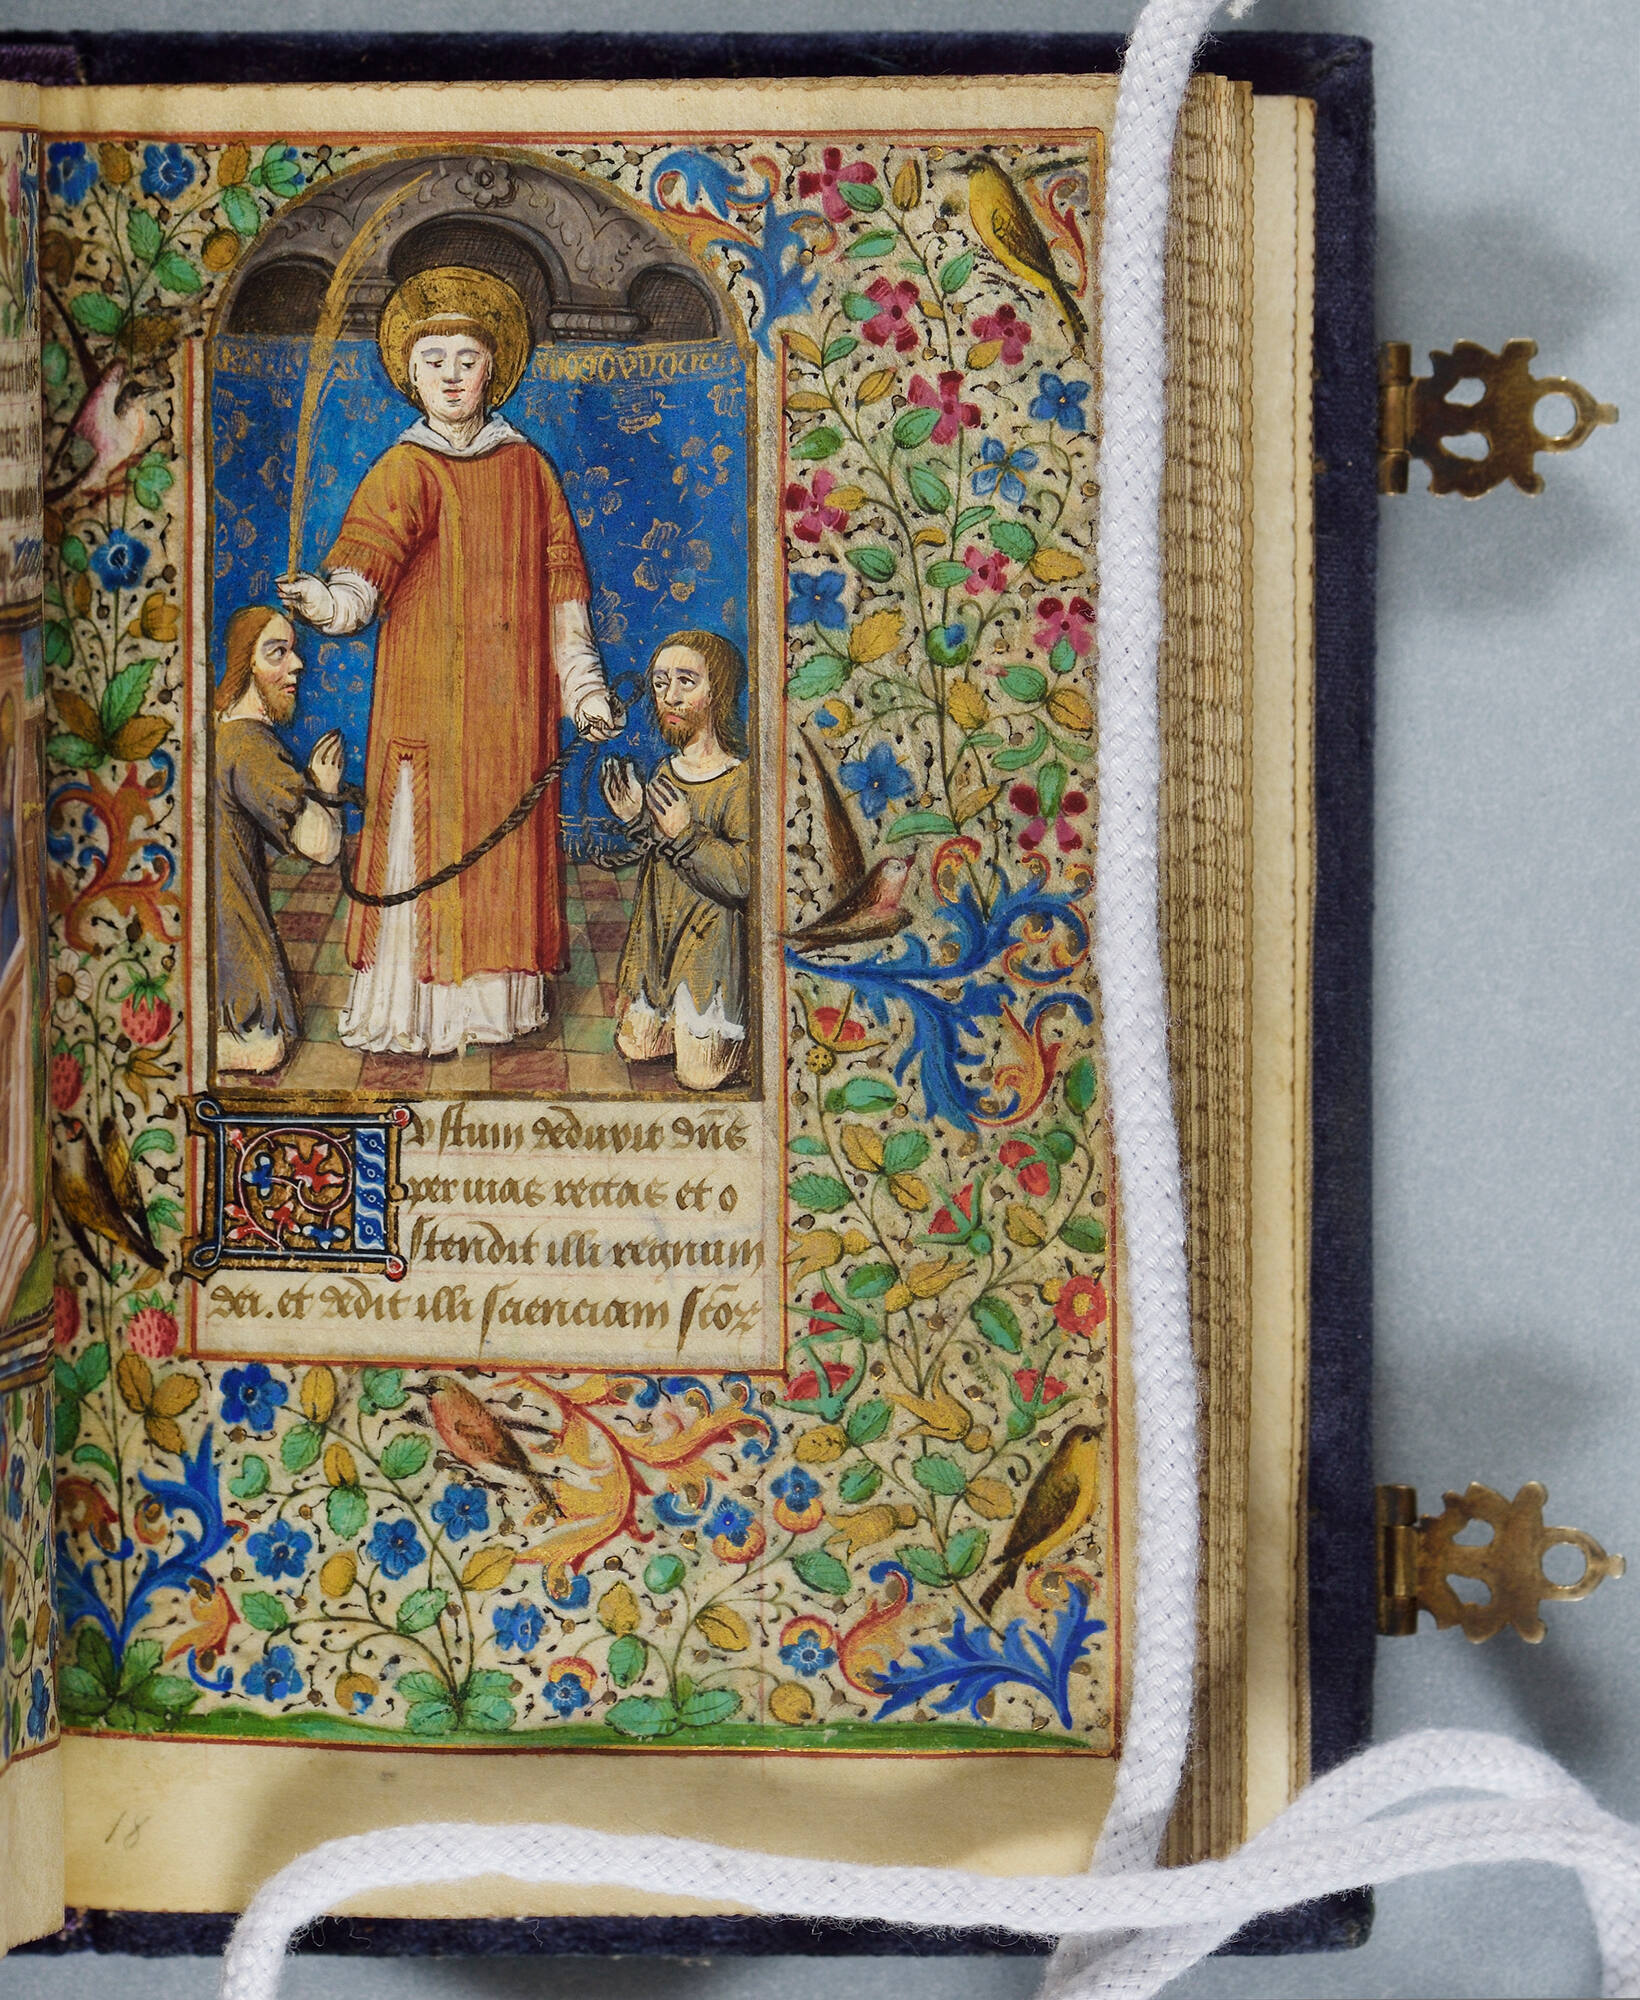 Iustum deduxit dn̄s
per uias rectas et o
stendit illi regnum
dei. et dedit illi scienciam sc̄oꝝ
18